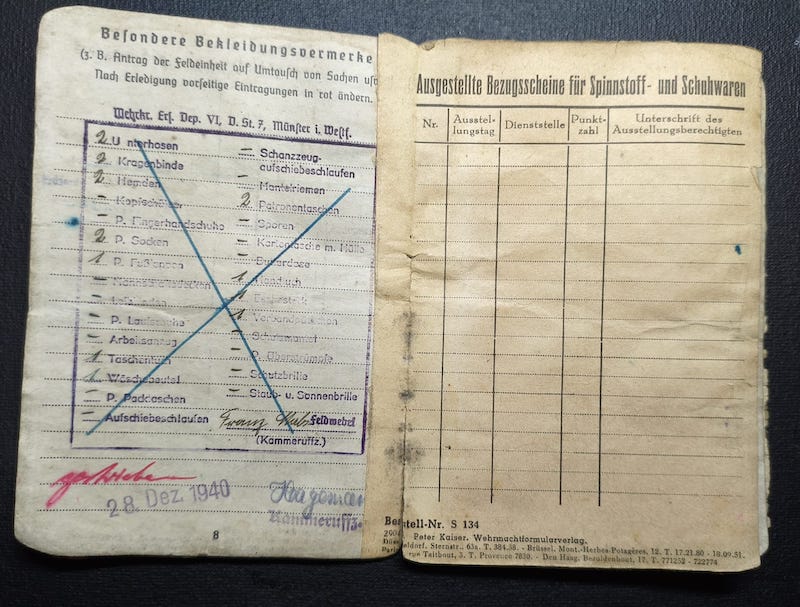 Besondere Bekleidungsvermerke
(z. B. Antrag der Feldeinheit auf Umtausch von Sachen usw
Nach Erledigung vorseitige Eintragungen in rot ändern.
Wehrkr. Ers. Dep. VI, D. St. 7, Münster i. Westf.
2 Unterhosen
2 Kragenbinde
2 Hemden
— Kopfschützer
— P. Fingerhandschuhe
2 P. Socken
1 P. Fußlappen
— Leibbinden
— P. Laufschuhe
— Arbeitsanzug
1 Taschentuch
1 Wäschebeutel
— P. Packtaschen
— Aufschiebeschlaufen
— Schanzzeug-
aufschiebeschlaufen
— Mantelriemen
2 Patronentaschen
— Sporen
— Kartentasche m. Hülle
— Butterdose
1 Handtuch
1 Essbesteck
1 Verbandpäckchen
— P. Überstrümpfe
— Schutzbrille
— Staub- u. Sonnenbrille
Franz Feldwebel
(Kammeruffz.)
28. Dez. 1940
Kammeruffz.
8
Ausgestellte Bezugsscheine für Spinnstoff- und Schuhwaren
Nr.
Ausstel-
lungstag
Dienststelle
Punkt-
zahl
Unterschrift des
Ausstellungsberechtigten
Be tell-Nr. S 134
Peter Kaiser. Wehrmachtformularverlag.
eldorf. Sternstr.. 63a. T. 384.58. - Brüssel. Mont.-Herbes-Potagères, 12. T. 17.21.80 - 18.09.51.
rue Taitbout, 3. T. Provence 7830. - Den Haag. Bezuidenhout, 17. T. 771252 - 722774